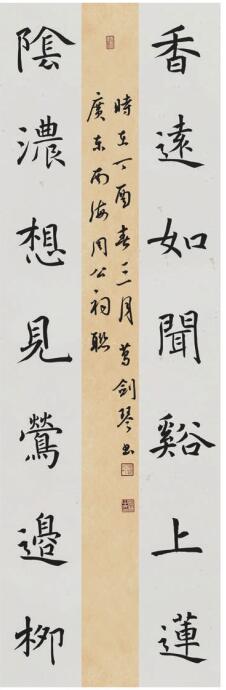 香遠如聞谿上蓮
時在丁酉春三月劍琴書
廣東南海周公祠聯
陰濃想見鶯邊柳